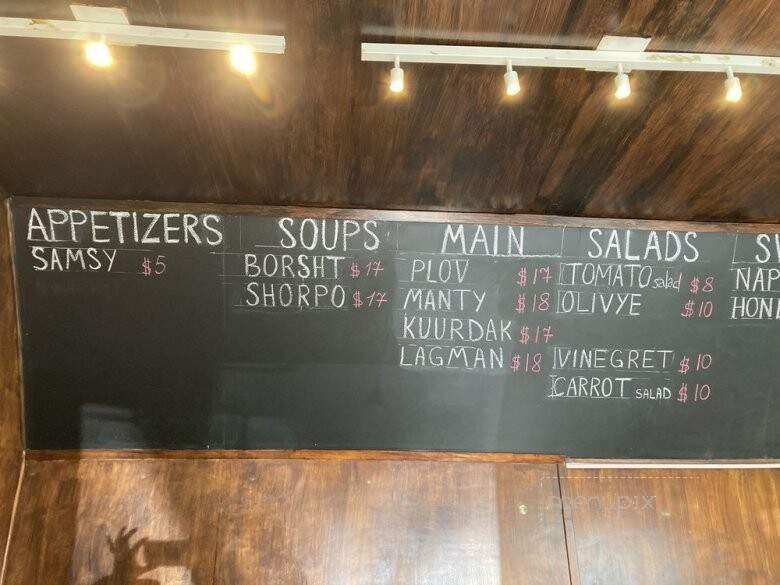 APPETIZERS
SAMSY $5
SOUPS
BORSHT $17
SHORPO $17
MAIN
PLOV $17
MANTY $18
KUURDAK $17
LAGMAN $18
SALADS
TOMATO salad $8
OLIVYE $10
VINEGRET $10
CARROT SALAD $10
NAP
menupix